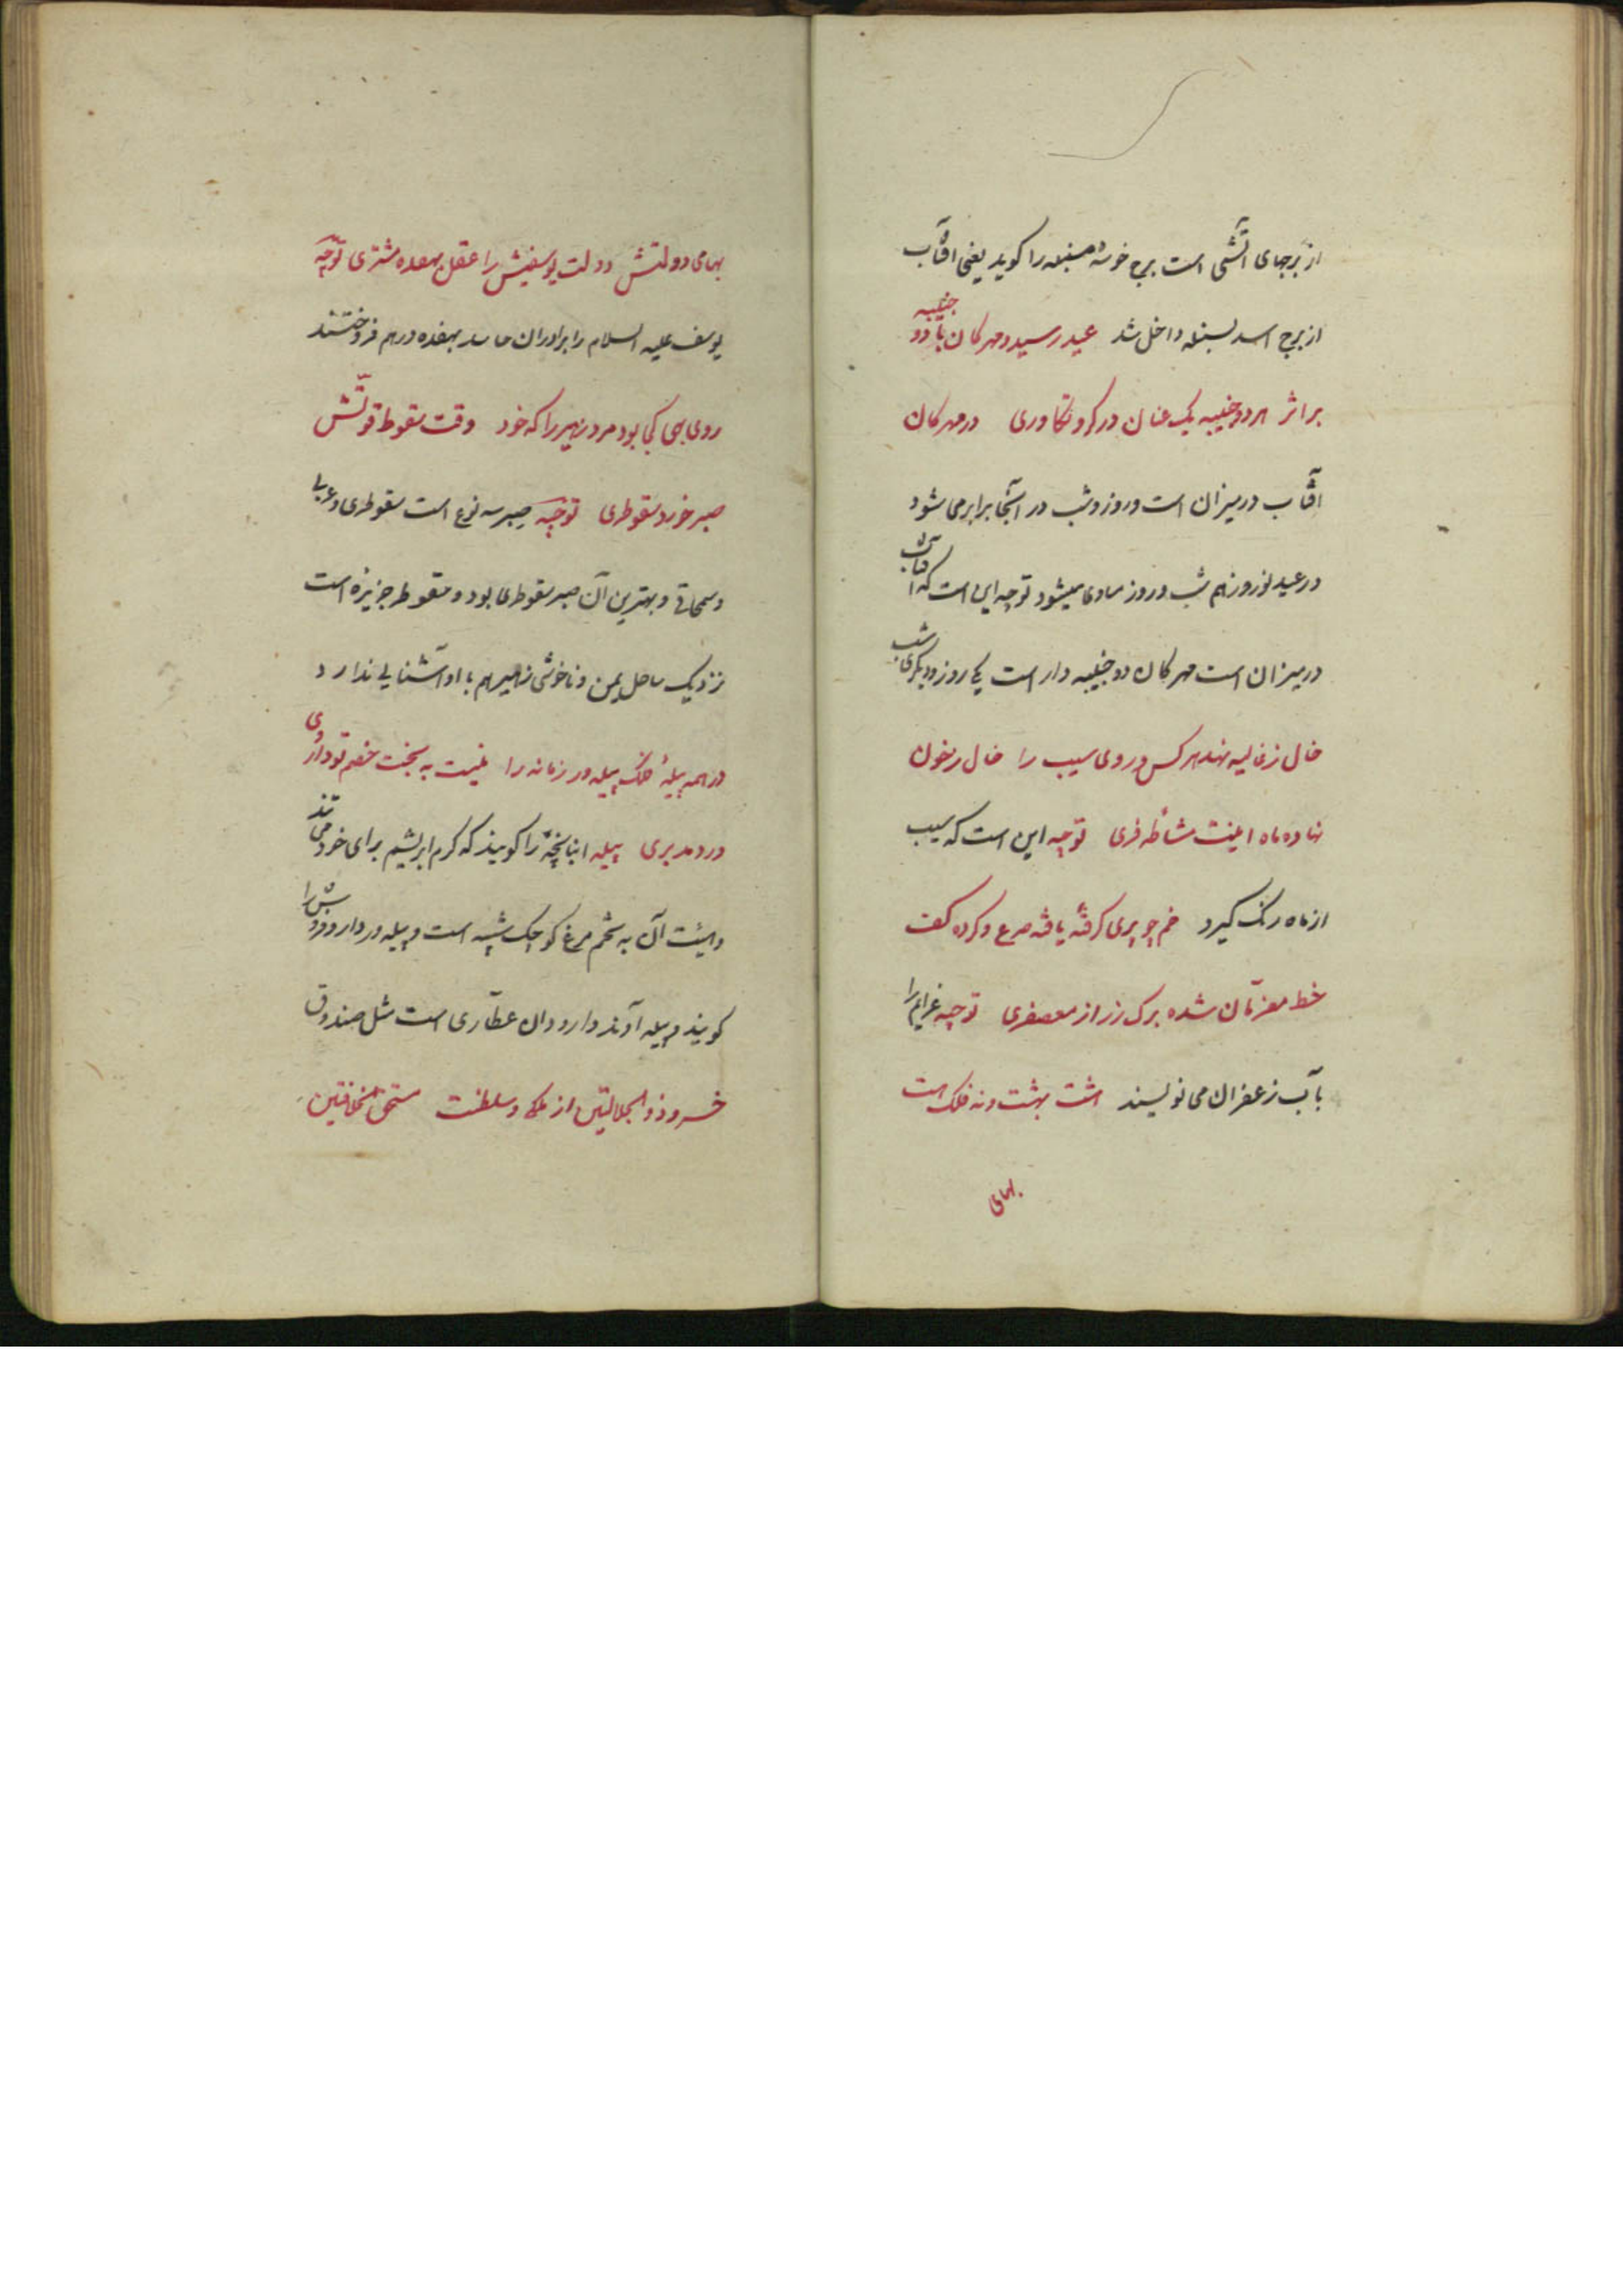 از برجهای آتشی است برج خوشه سنبله را کوید یعنی افتاب
از برج اسد بسنبله داخل شد عید رسید و مهرکان با دو جنیبه
بر اثر هر دو جنیبه یک عنان در کرو تکاوری در مهرکان
افتاب در میزان است و روز و شب در آنجا برابر می شود
در عید نوروز هم شب و روز مساوی میشود توجیه این است که آفتاب
در میزان است مهرکان دو جنیبه دار است یکی روز و دیکری شب
خال ز غالیه نهد هر کس و روی سیب را خال ز خون
نهاده ماه اینت مشاطه فری توجیه این است که سیب
از ماه رنک کیرد خم چو پری کرفتهٔ یافته صرع و کرده کف
خط معزمان شده برک رز از معصفری توجیه عزایم را
بآب زعفران می نویسند هشت بهشت و نه فلک هست
بهای
بهای دولتش دولت یوسفیش را عقل بهفده مشتری توجیه
یوسف علیه السلام را برادران حاسد بهفده درهم فروختند
روی بهی کی بود مرد زحیر را که خود وقت سقوط قوتش
صبر خورد سقوطری توجیه صبر سه نوع است سقوطری و عربی
و سمحانی و بهترین آن صبر سقوطری بود و سقوطر جزیره است
نزدیک ساحل یمن و ناخوشی زحیر هم با او آشنایی ندارد
در همه پیلهٔ فلک پیله ور زمانه را نیست به بخت خصم تو داروی
درد مدبری پیله انبانچهٔ را کویند که کرم ابریشم برای خود می تند
و هیئت آن به تخم مرغ کوچک شبیه است و پیله ور دارو فروش را
کویند و پیله آوند دارو دان عطاری است مثل صندوق
خسرو ذو الجلالتین از ملکی و سلطنت مستحق الخلافتین